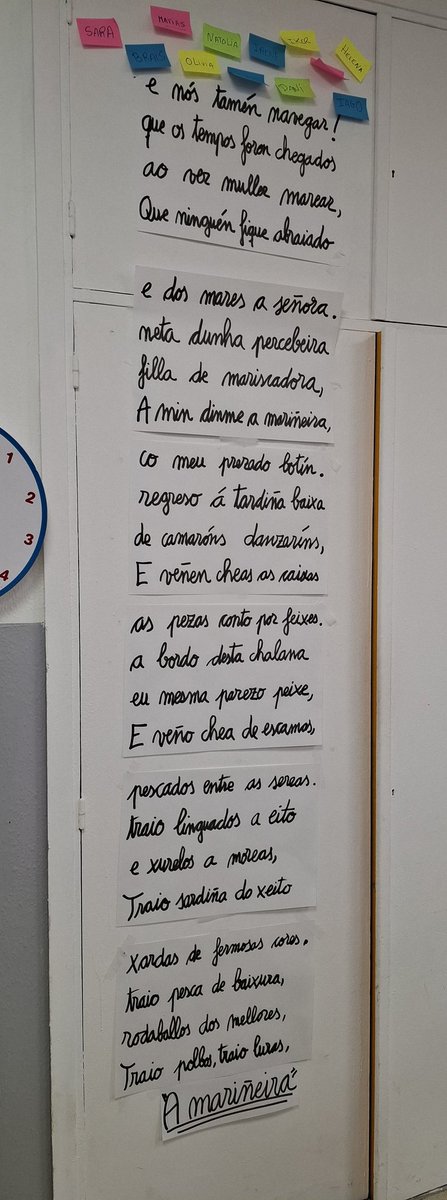 SARA
MATÍAS
NATALIA
IKER
HELENA
BRAIS
OLIVIA
DANI
IAGO
e nós tamén navegar!
que os tempos foron chegados
ao ver muller marear,
Que ninguén fique abraiado
e dos mares a señora.
neta dunha percebeira
filla de mariscadora,
A min dinme a mariñeira,
co meu prezado botín.
regreso á tardiña baixa
de camaróns danzaríns,
E veñen cheas as caixas
as pezas conto por feixes.
a bordo desta chalana
eu mesma parezo peixe,
E veño chea de escamas,
pescados entre as sereas.
traio linguados a eito
e xurelos a moreas,
Traio sardiña do xeito
xardas de fermosas cores.
traio pesca de baixura,
rodaballos dos mellores,
Traio polbos, traio luras,
"A mariñeira"
1
2
3
4